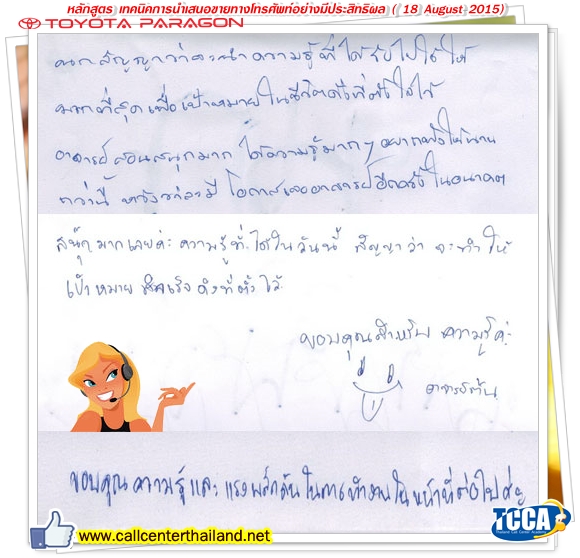 หลักสูตร เทคนิคการนำเสนอขายทางโทรศัพท์อย่างมีประสิทธิผล ( 18 August 2015)
TOYOTA PARAGON
สัญญาว่าจะนำความรู้ที่ได้รับไปใช้ให้
มากที่สุดเพื่อเป้าหมายในชีวิตดังที่ตั้งใจไว้
อาจารย์สอนสนุกมาก ได้ความรู้มากๆ อยากฟังให้นาน
กว่านี้ หวังว่าจะมีโอกาสเจออาจารย์อีกครั้งในอนาคตฯ
สนุกมากเลยค่ะ ความรู้ที่ได้ในวันนี้ สัญญาว่า จะทำให้
เป้าหมาย สำเร็จ ดังที่ตั้งไว้
ขอบคุณสำหรับ ความรู้ค่ะ
อาจารย์ต้น
ขอบคุณความรู้และแรงผลักดันในการทำงานในหน้าที่ต่อไปค่ะ
www.callcenterthailand.net
TCCA
Thailand Call Center Academy